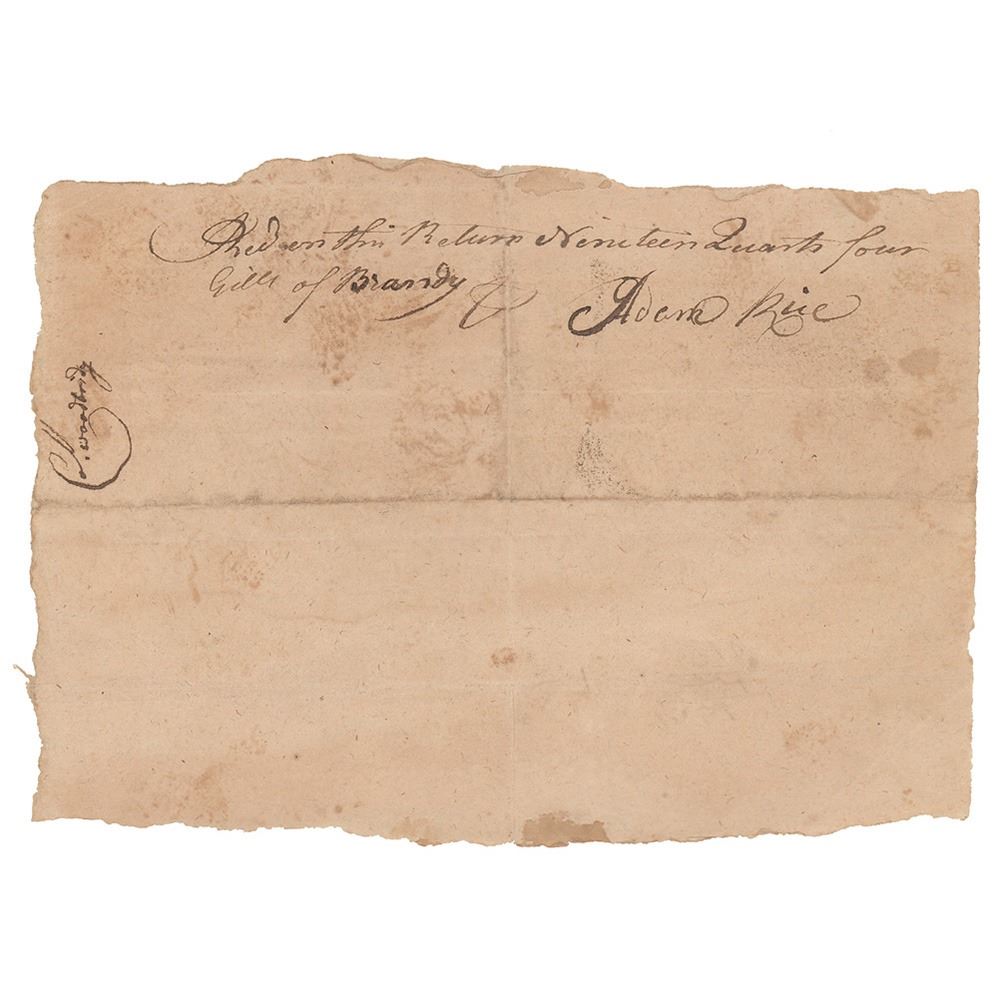 Recd on this Return Nineteen Quarts four
Gills of Brandy
Adam Rice